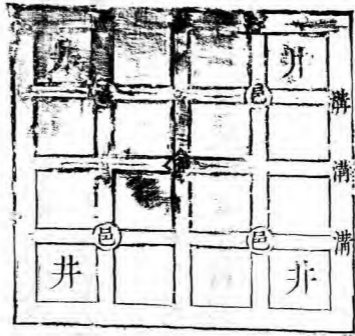 井 井
邑 溝
溝
邑 邑 溝
井 井